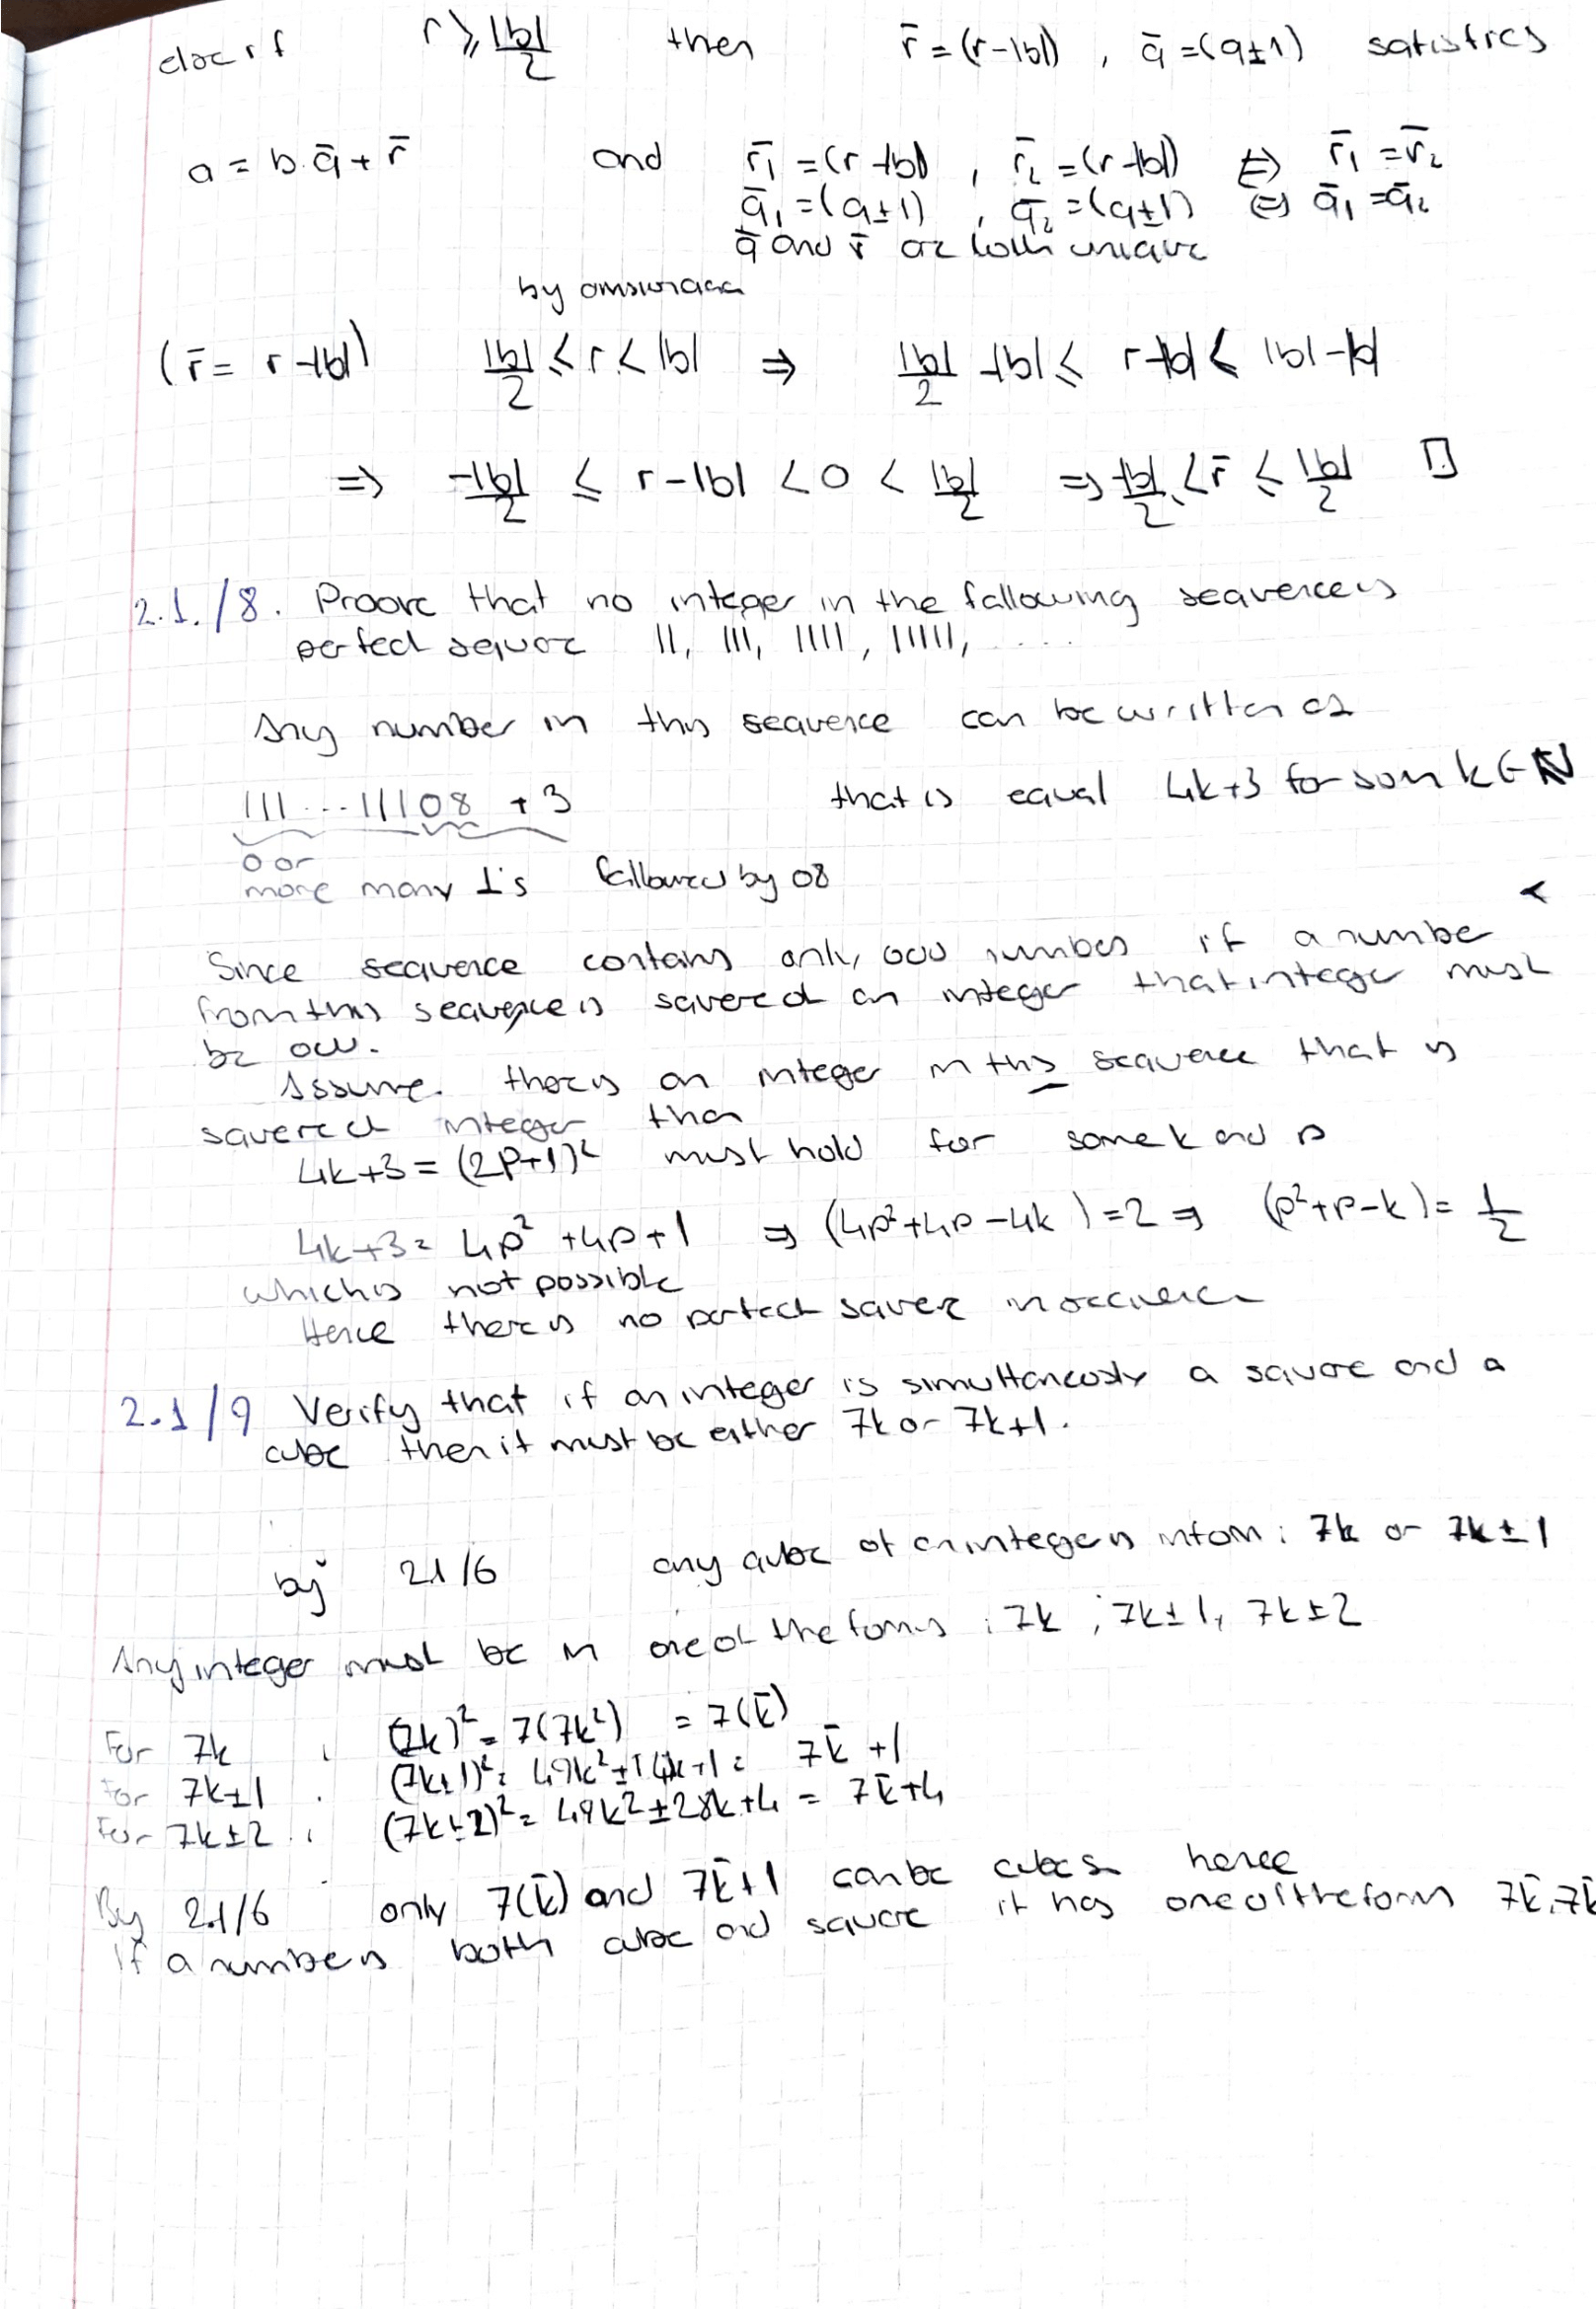 r ≥ |b|/2 then r̄ = (r-|b|) , q̄ = (q±1) satisfies
a = b.q̄ + r̄ and r̄₁ = (r-|b|) , r̄₂ = (r-|b|) ⇔ r̄₁ = r̄₂
q̄₁ = (q±1) , q̄₂ = (q±1) ⇔ q̄₁ = q̄₂
q̄ and r̄ are both unique
by
(r̄ = r-|b|) |b|/2 ≤ r < |b| ⇒ |b|/2 -|b| ≤ r-|b| < |b|-|b|
⇒ -|b|/2 ≤ r-|b| < 0 < |b|/2 ⇒ -|b|/2 < r̄ ≤ |b|/2 □
2.1./8. Proove that no integer in the following sequence is
perfect square 11, 111, 1111, 11111, ....
Any number in this sequence can be written as
111...11108 + 3 that is equal 4k+3 for som k ∈ N
0 or
more many 1's followed by 08
Since sequence contains only odd numbers if a number
from this sequence is squared an integer that integer must
be odd.
Assume there is an integer in this sequence that is
squared integer then
4k+3 = (2p+1)² must hold for some k and p
4k+3 = 4p² +4p+1 ⇒ (4p²+4p-4k) = 2 ⇒ (p²+p-k) = 1/2
which is not possible
Hence there is no perfect square in
2.1/9 Verify that if an integer is simultaneously a square and a
cube then it must be either 7k or 7k+1.
by 2.1/6 any cube of an integer is in form : 7k or 7k±1
Any integer must be in one of the forms : 7k , 7k±1, 7k±2
For 7k : (7k)² = 7(7k²) = 7(k̄)
For 7k±1 : (7k±1)² = 49k²±14k+1 = 7k̄ +1
For 7k±2 : (7k±2)² = 49k²±28k+4 = 7k̄+4
By 2.1/6 only 7(k̄) and 7k̄+1 can be cubes hence
If a number is both cube and square it has one of the form 7k̄, 7k̄